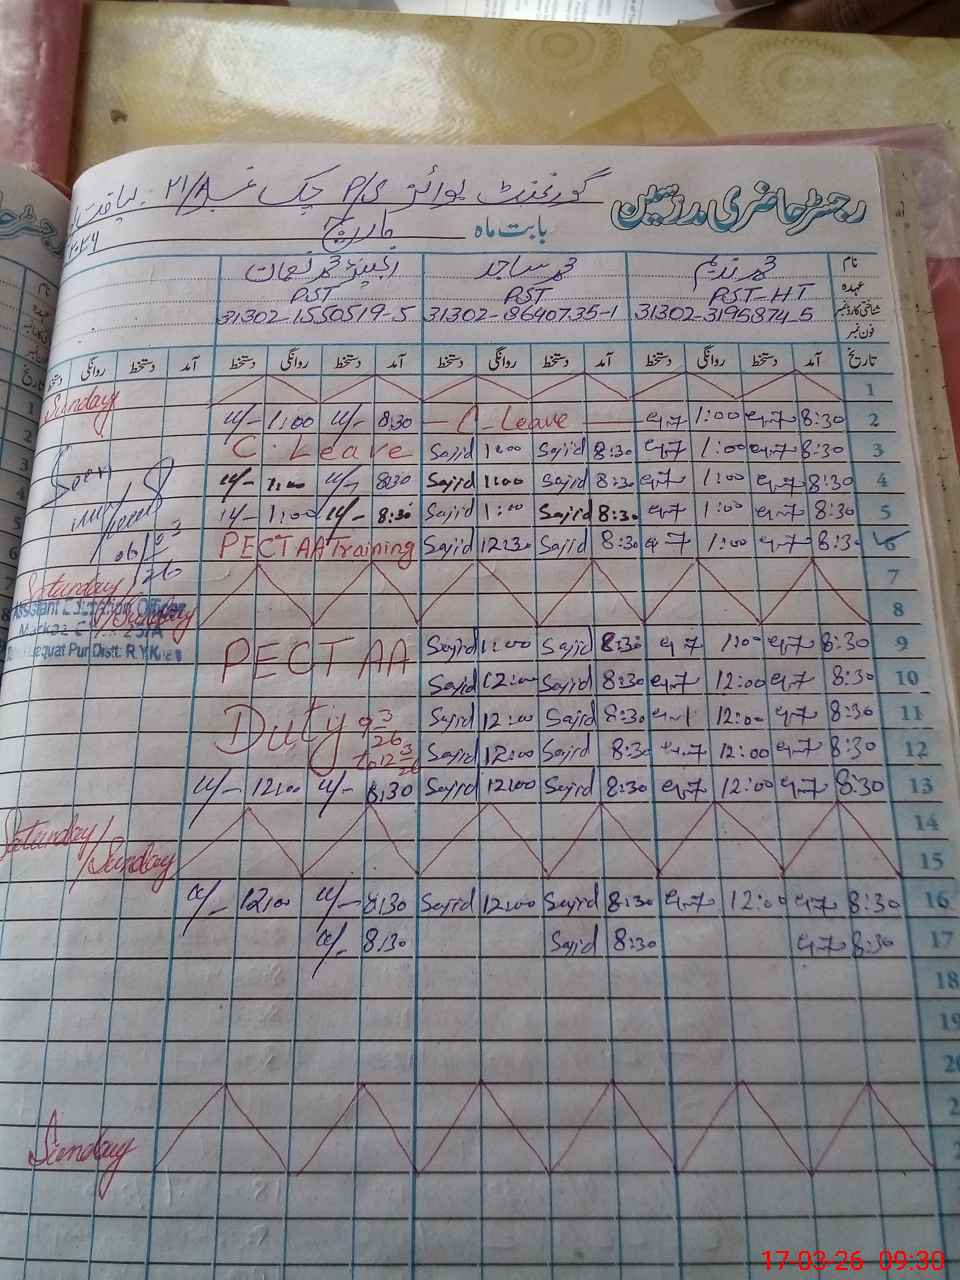 رجسٹر حاضری مدرسین
گورنمنٹ بوائز P/S چک نمبر 21/A لیاقت
بابت ماہ مارچ
نام محمد ندیم محمد ساجد محمد نعمان
عہدہ PST-HT PST PST
شناختی کارڈ نمبر 31302-3195874-5 31302-8640735-1 31302-1550519-5
فون نمبر
تاریخ آمد دستخط روانگی دستخط آمد دستخط روانگی دستخط آمد دستخط روانگی دستخط آمد دستخط روانگی دستخط
Sunday 1
1:00 8:30 C-Leave 1:00 8:30 2
C. Leave Sajid 1:00 Sajid 8:30 1:00 8:30 3
1:00 8:30 Sajid 1:00 Sajid 8:30 1:00 8:30 4
1:00 8:30 Sajid 1:00 Sajid 8:30 1:00 8:30 5
06/03/26 PECTAA Training Sajid 12:30 Sajid 8:30 1:00 8:30 6
Saturday 7
/Sunday 8
Assistant Education Officer
Liaquat Pur Distt: R.Y.Khan
PECTAA Sajid 1:00 Sajid 8:30 1:00 8:30 9
Sajid 12:00 Sajid 8:30 12:00 8:30 10
Duty 9 3/26 Sajid 12:00 Sajid 8:30 12:00 8:30 11
to 12 3/26 Sajid 12:00 Sajid 8:30 12:00 8:30 12
12:00 8:30 Sajid 12:00 Sajid 8:30 12:00 8:30 13
Saturday/ 14
/Sunday 15
12:00 8:30 Sajid 12:00 Sajid 8:30 12:00 8:30 16
8:30 Sajid 8:30 8:30 17
18
19
20
Sunday
17-03-26 09:30